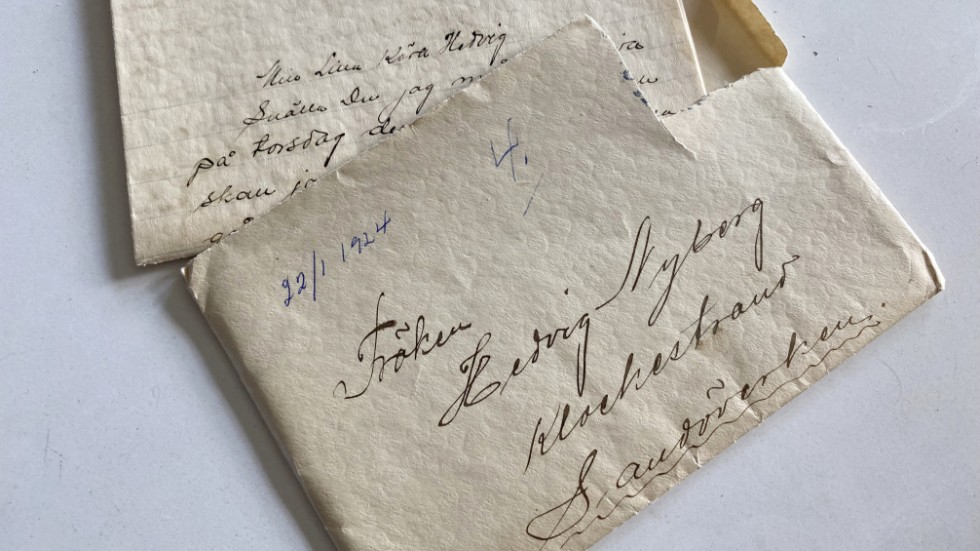 Min Lilla Kära Hedvig
Snälla Du jag
på torsdag den
skall
4.
22/1 1924
Fröken
Hedvig Nyberg
Klockestrand
Sandöverken.